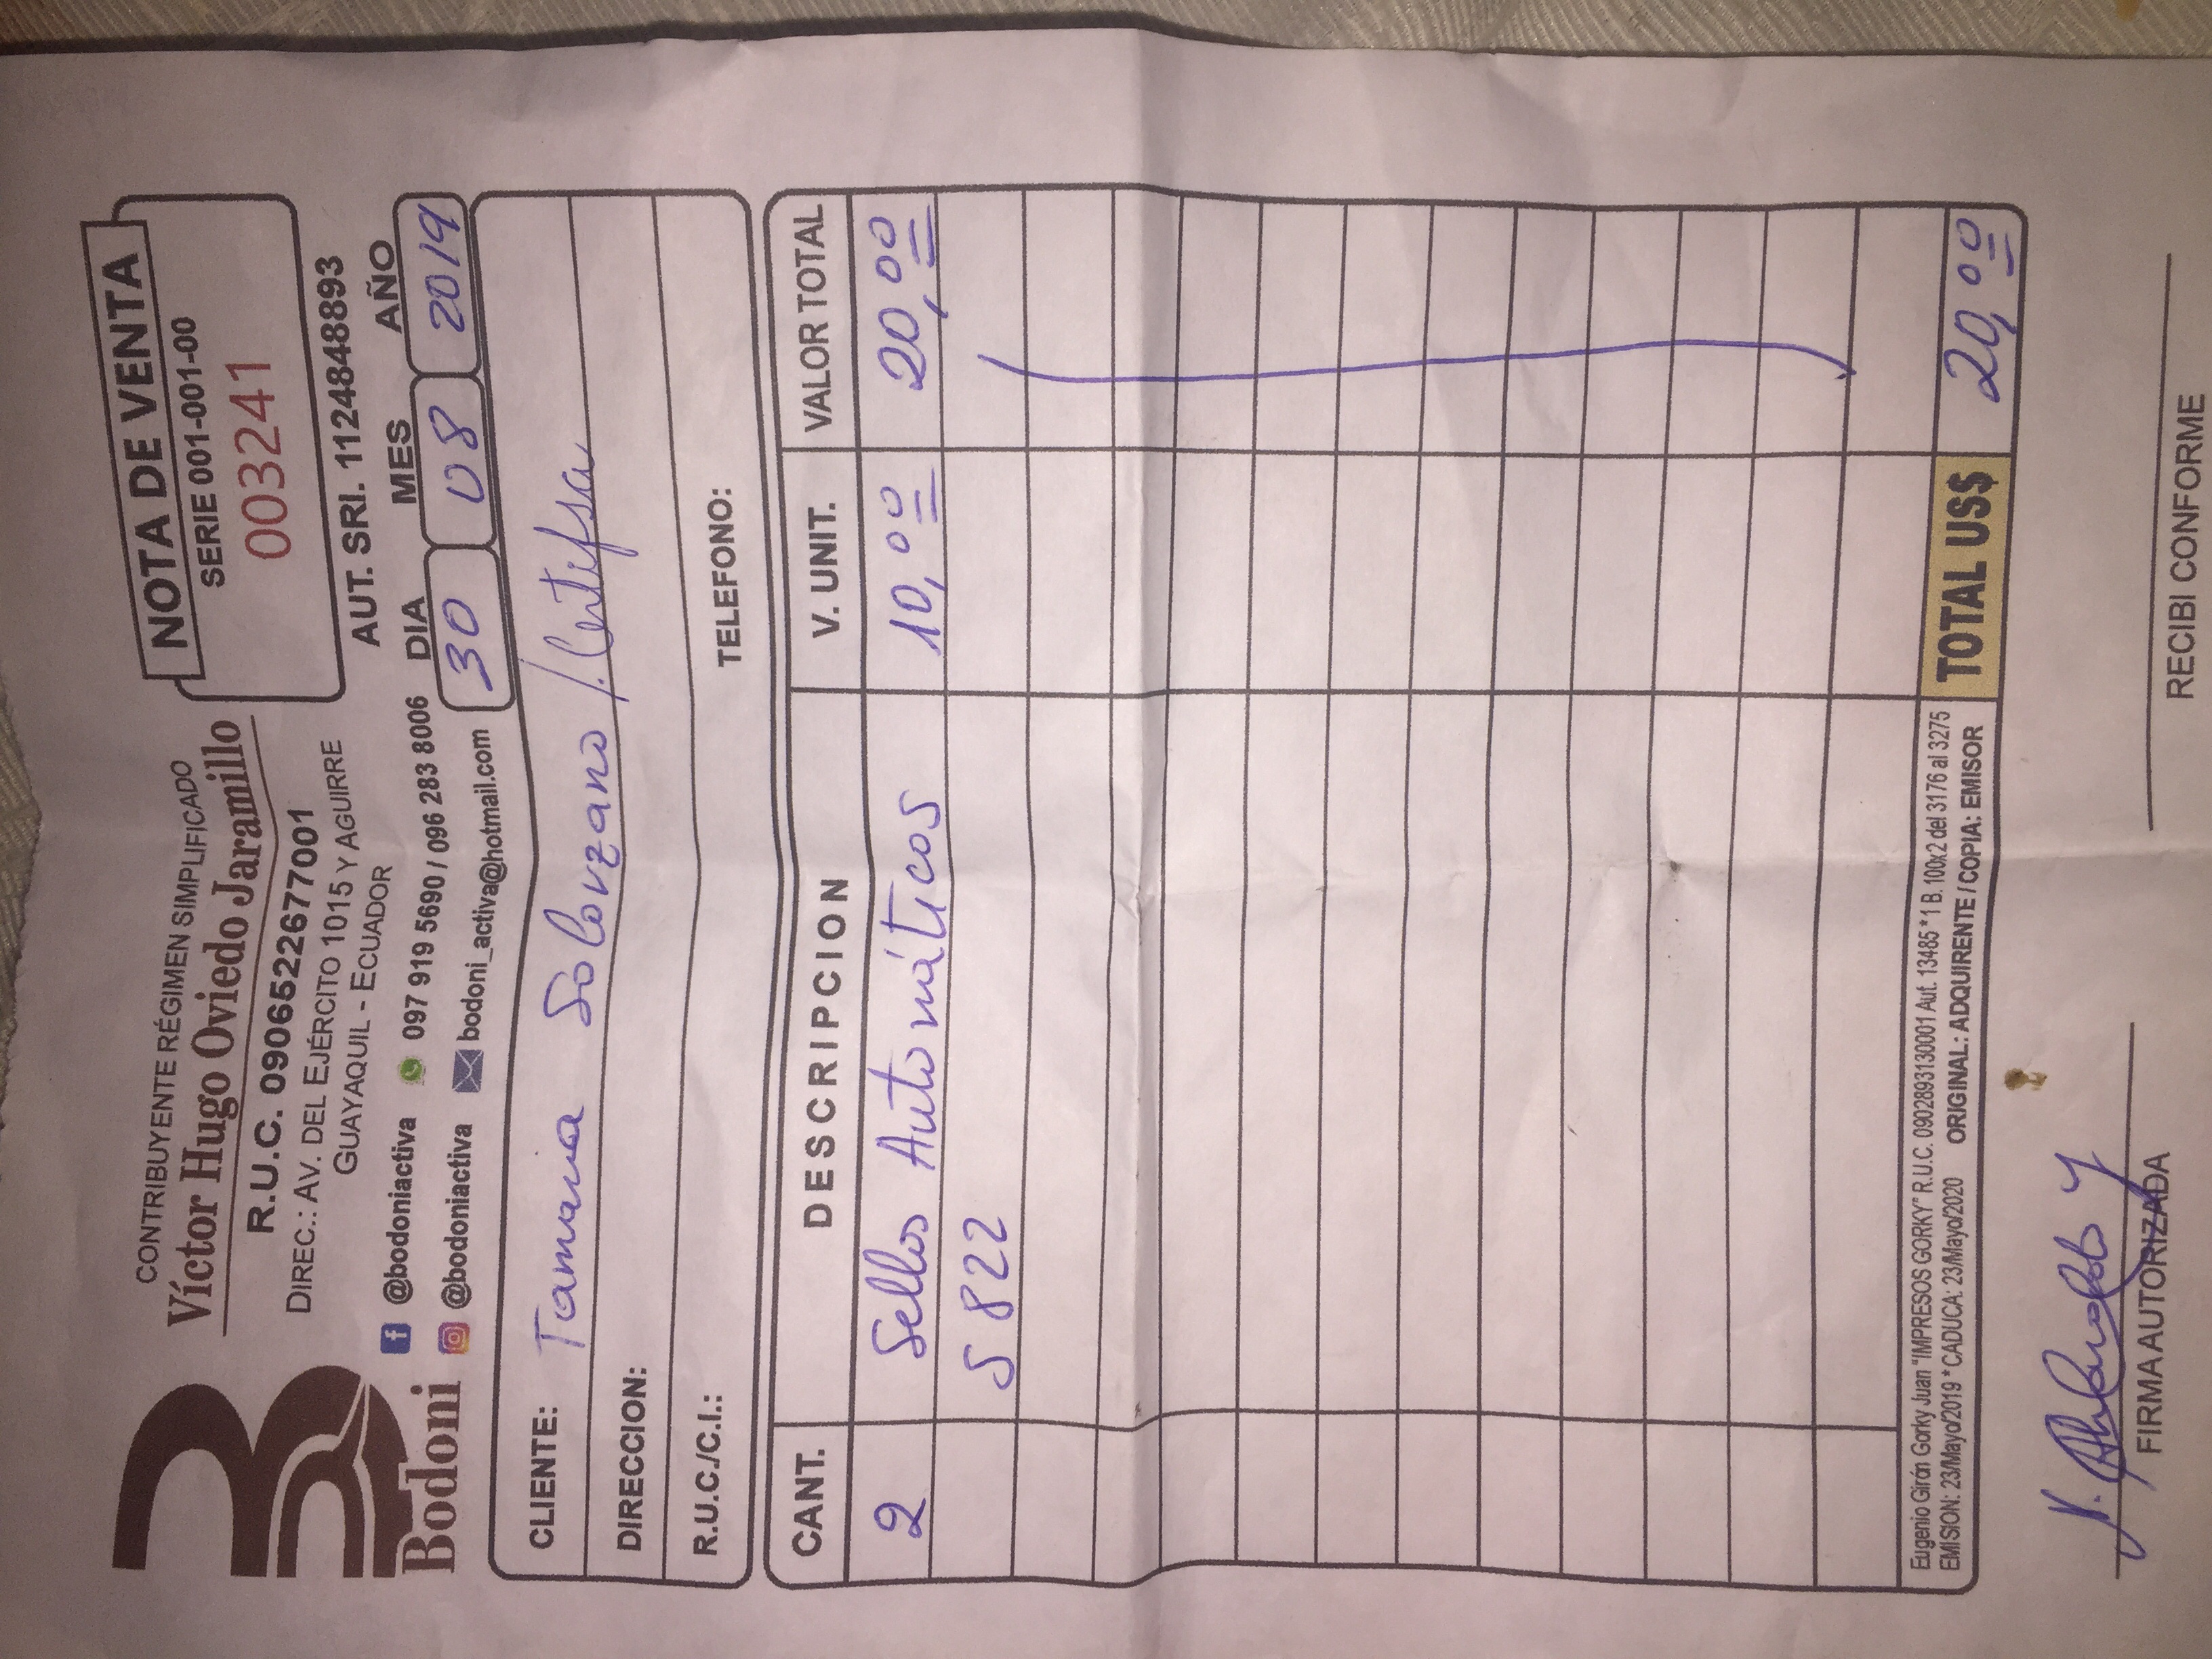 CONTRIBUYENTE RÉGIMEN SIMPLIFICADO
Víctor Hugo Oviedo Jaramillo
R.U.C. 0906522677001
DIREC.: AV. DEL EJÉRCITO 1015 Y AGUIRRE
GUAYAQUIL - ECUADOR
Bodoni
@bodoniactiva 097 919 5690 / 096 283 8006
@bodoniactiva bodoni_activa@hotmail.com
NOTA DE VENTA
SERIE 001-001-00
003241
AUT. SRI. 1124848893
DIA MES AÑO
30 08 2019
CLIENTE: Tamara Solorzano /. Certifsa
DIRECCION:
R.U.C./C.I.: TELEFONO:
CANT. DESCRIPCION V. UNIT. VALOR TOTAL
2 Sellos Automáticos 10,00 20,00
S 822
Eugenio Girón Gorky Juan "IMPRESOS GORKY" R.U.C. 0902893130001 Aut. 13485 * 1 B. 100x2 del 3176 al 3275
EMISION: 23/Mayo/2019 * CADUCA: 23/Mayo/2020 ORIGINAL: ADQUIRENTE / COPIA: EMISOR
TOTAL US$ 20,00
FIRMA AUTORIZADA
RECIBI CONFORME